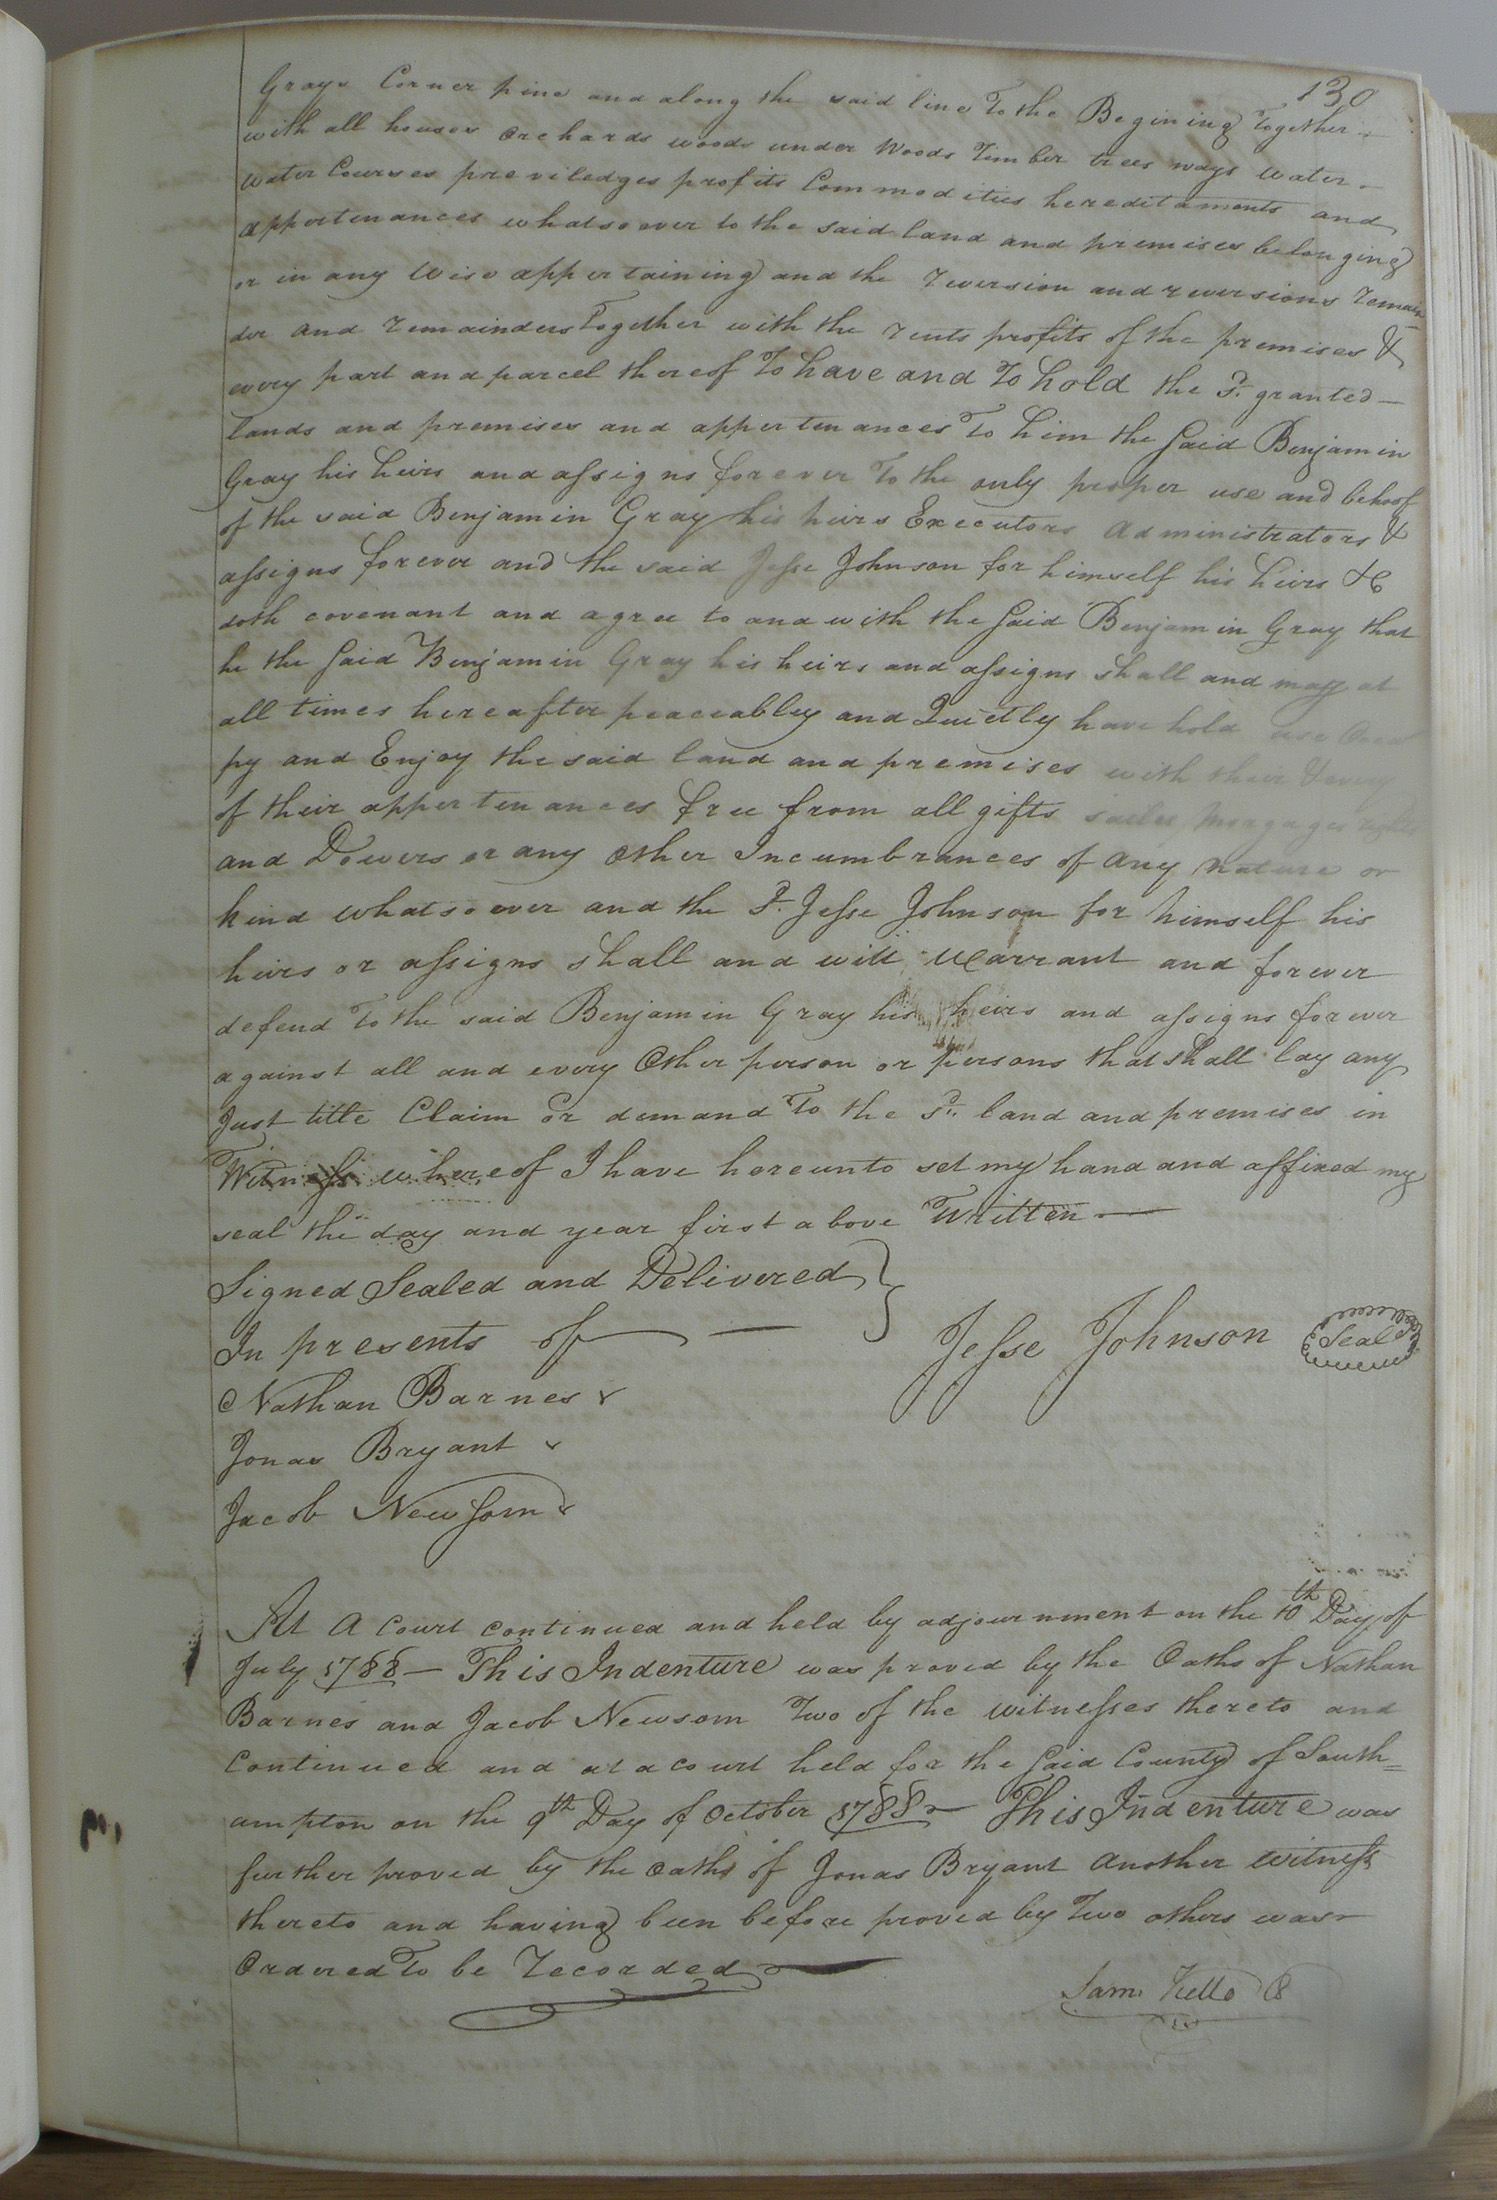 130
Grays Corner pine and along the said line To the Begining Together
with all houses orchards woods under Woods Timber trees ways water
water Courses previledges profits Commodities hereditaments and
appertenances whatsoever to the said land and premises belonging
or in any Wise appertaining and the reversion and reversions remain
der and remainders Together with the rents profits of the premises &
every part and parcel thereof To have and To hold the Sd. granted —
lands and premises and appertenances To him the Said Benjamin
Gray his heirs and assigns forever To the only proper use and behoof
of the said Benjamin Gray his heirs Executors Administrators &
assigns forever and the said Jesse Johnson for himself his heirs &c
doth covenant and agree to and with the Said Benjamin Gray that
he the Said Benjamin Gray his heirs and assigns shall and may at
all times hereafter peaceably and Quietly have hold use Occu
py and Enjoy the said land and premises with their & every
of their appertenances free from all gifts sailes Morgages
and Dowers or any other Incumbrances of any nature or
kind whatsoever and the Sd. Jesse Johnson for himself his
heirs or assigns shall and will Warrant and forever
defend To the said Benjamin Gray his heirs and assigns forever
against all and every Other person or persons that shall lay any
Just title Claim or demand To the Sd. land and premises in
Witness whereof I have hereunto set my hand and affixed my
seal the day and year first above Written —
Signed Sealed and Delivered }
In presents of — —
Jesse Johnson Seal
Nathan Barnes
Jonas Bryant
Jacob Newsom
At a Court continued and held by adjournment on the 10th Day of
July 1788 — This Indenture was proved by the Oaths of Nathan
Barnes and Jacob Newsom Two of the witnesses thereto and
Continued and at a court held for the Said County of South=
ampton on the 9th Day of October 1788 — This Indenture was
further proved by the oaths of Jonas Bryant Another witness
thereto and having been before proved by Two others was
Ordered To be recorded —
Sam. Kello C